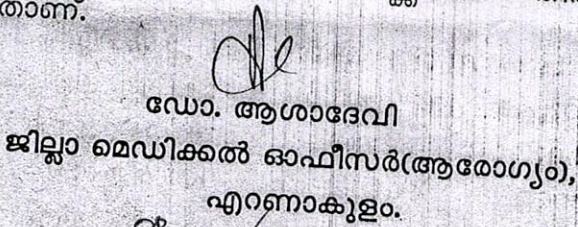 താണ്.
ഡോ. ആശാദേവി
ജില്ലാ മെഡിക്കൽ ഓഫീസർ(ആരോഗ്യം),
എറണാകുളം.